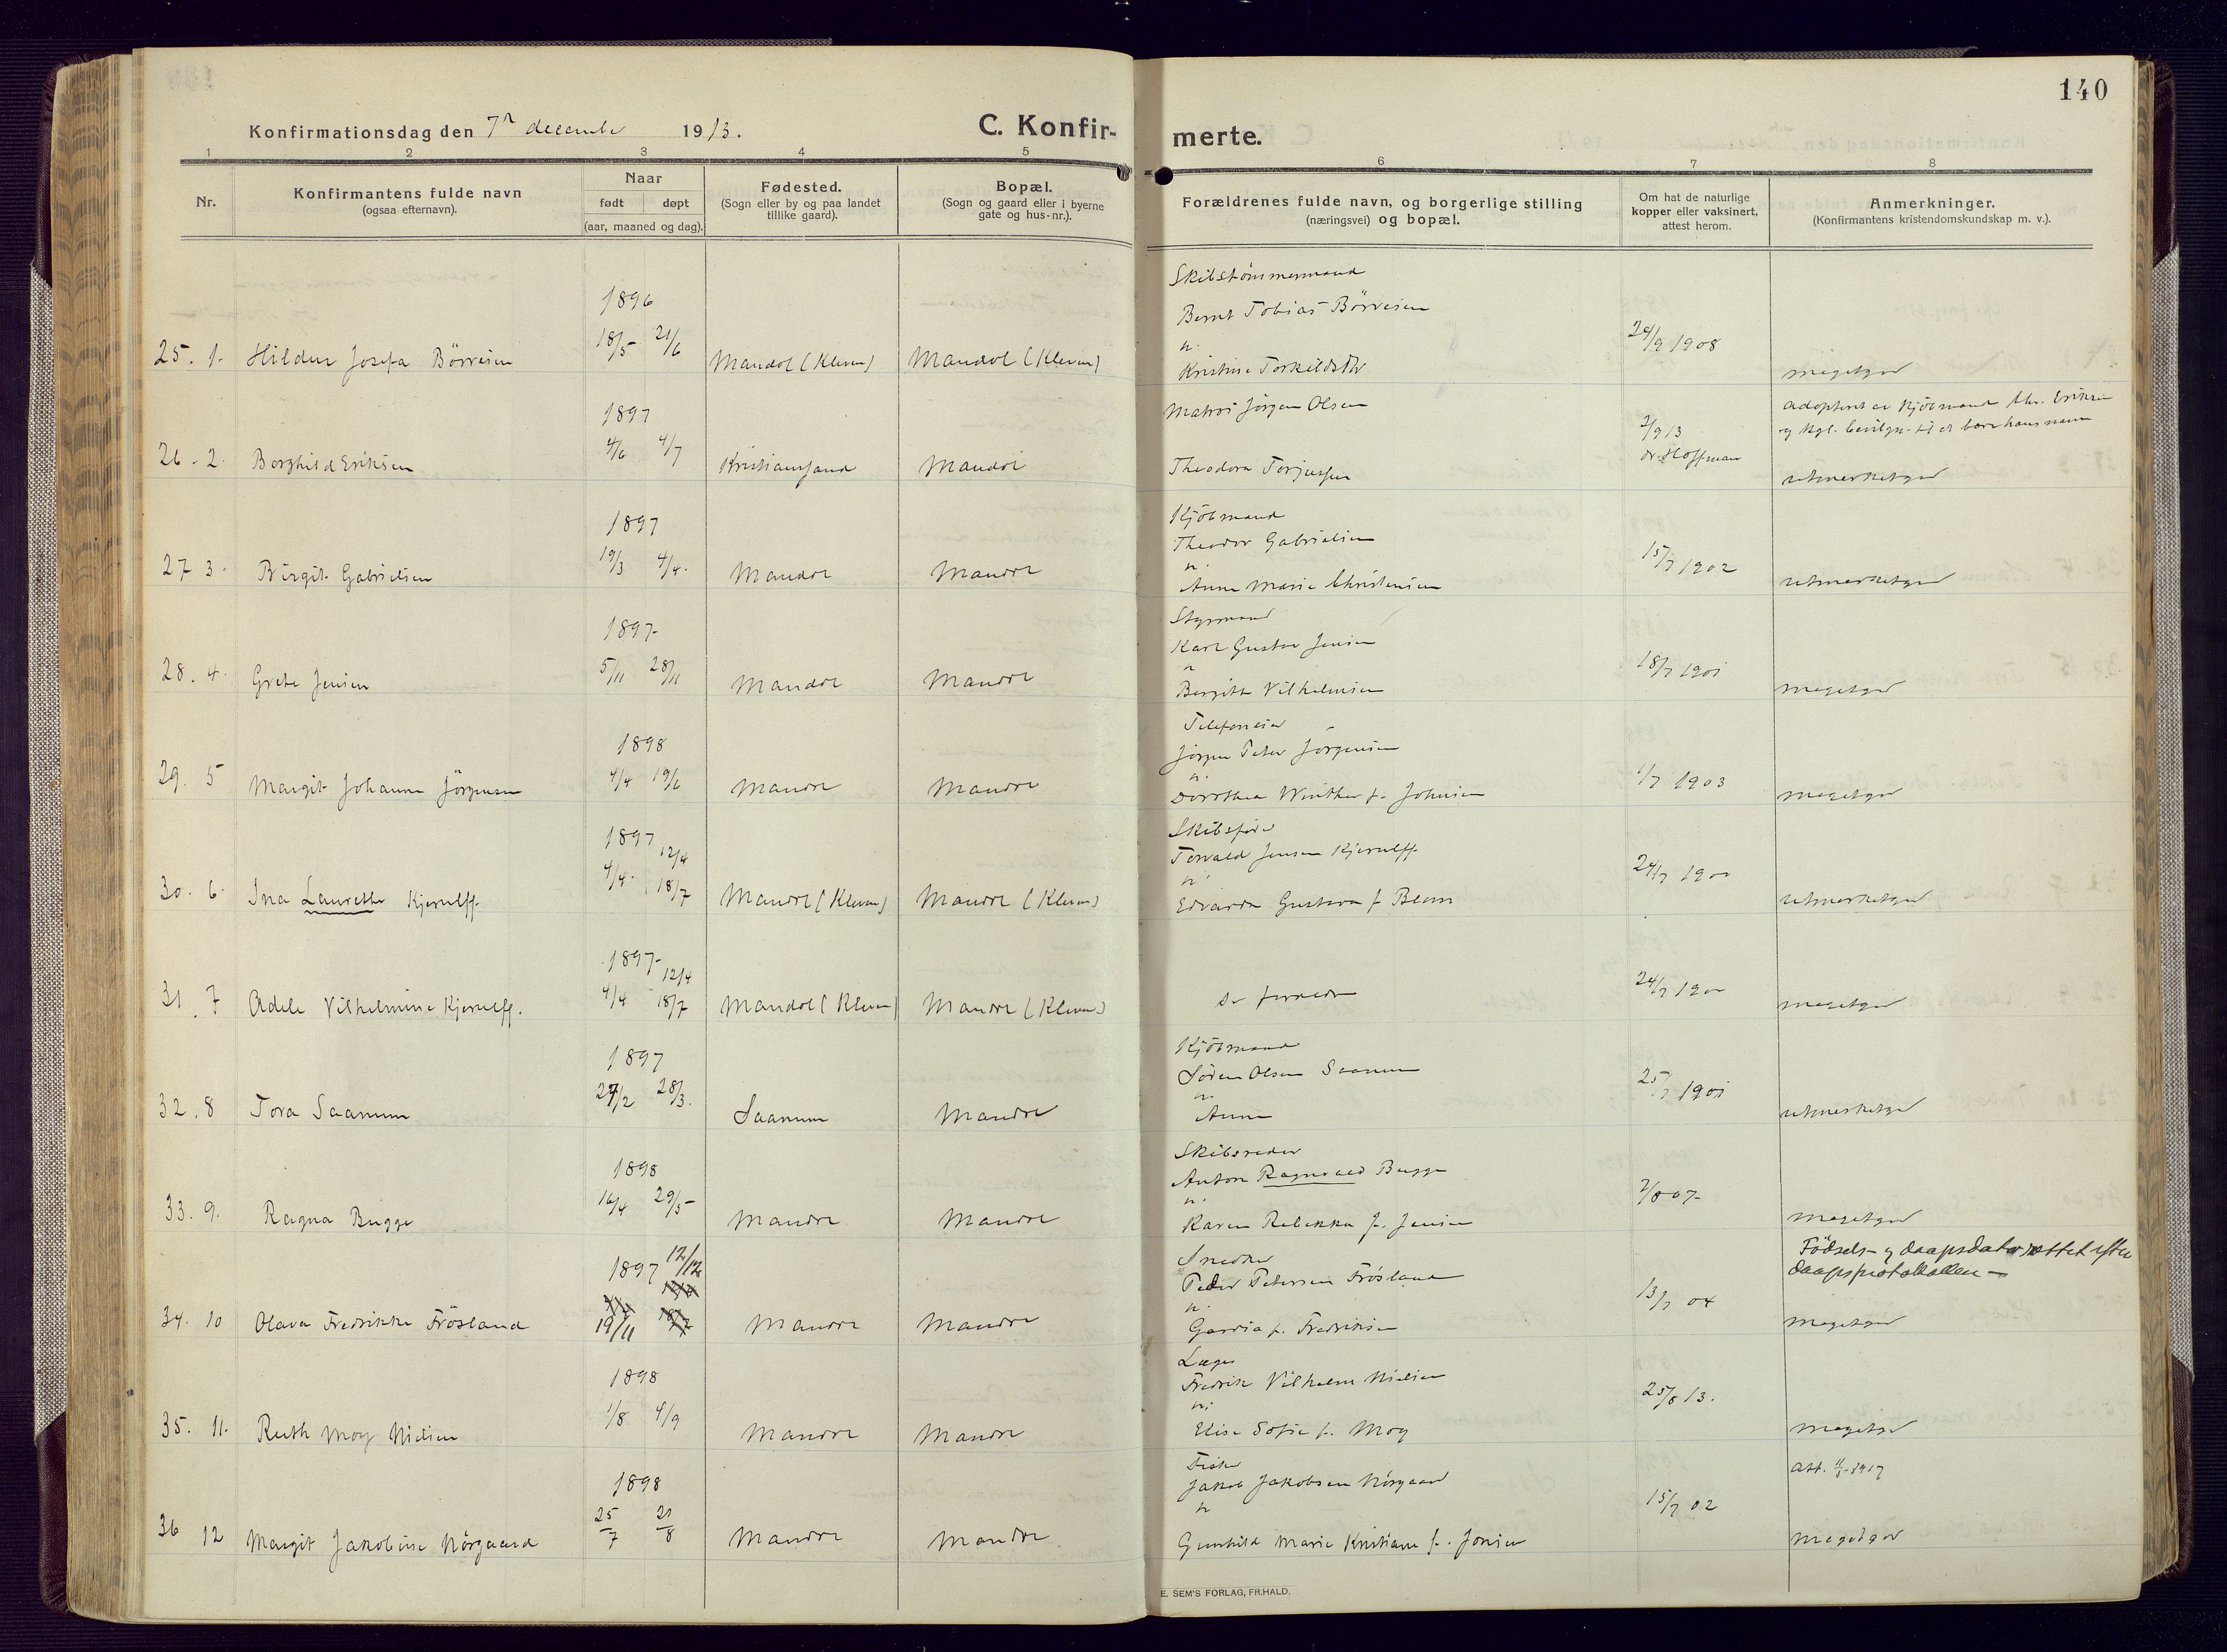 140
Konfirmationsdag den 7n december 1913.
C. Konfir-
merte.
1 2 3 4 5 6 7 8
Nr.
Konfirmantens fulde navn
(ogsaa efternavn).
Naar
født døpt
(aar, maaned og dag).
Fødested.
(Sogn eller by og paa landet
tillike gaard).
Bopæl.
(Sogn og gaard eller i byerne
gate og hus-nr.).
Forældrenes fulde navn, og borgerlige stilling
(næringsvei) og bopæl.
Om hat de naturlige
kopper eller vaksinert,
attest herom.
Anmerkninger.
(Konfirmantens kristendomskundskap m. v.).
Skibstömmermand
1896
Bernt Tobias Börresen
25. 1. Hildur Josefa Börresen 18/5 21/6 Mandal (Kleven) Mandal (Kleven) 1908
Kristine Torkildsdtr
megetgod
1897
Matros Jörgen Olsen
adopteret av Kjöbmand Chr. Eriksen
og kgl. bevilgn. til at bære hans navn
26 - 2. Borghild Eriksen 4/6 4/7 Kristianssand Mandal
Theodora Torjussen
2/9 13
dr. Hoffman
utmerketgod
Kjöbmand
1897
Theodor Gabrielsen
27 3. Birgit Gabrielsen 19/3 4/4. Mandal Mandal
Anne Marie Christensen
15/7 1902
utmerketgod
Styrmand
1897
Karl Gustav Jensen
28. 4. Grete Jensen 5/11 28/11 Mandal Mandal
Bergitte Vilhelmsen
18/7 1901
megetgod
Telefoneier
1898
Jörgen Peter Jörgensen
29. 5 Margit Johanne Jörgensen 4/4 19/6 Mandal Mandal
Dorothea Winther f. Johnsen
1/7 1903
megetgod
Skibsförer
1897
Torvald Jensen Kjerulff
12/4
30. 6. Ina Laurethe Kjerulff. 4/4 18/7 Mandal (Kleven) Mandal (Kleven)
Edvarda Gustava f. Blom
24/7 1900
utmerketgod
1897
12/4
31. 7 Adele Vilhelmine Kjerulff. 4/4 18/7 Mandal (Kleven) Mandal (Kleven)
24/7 1900
megetgod
Kjöbmand
1897
Sören Olsen Saanum
32. 8 Tora Saanum 27/2 28/3. Saanum Mandal
Anne
25/7 1901
utmerketgod
Skibsreder
1898
Anton Ragnvald Bugge
33. 9. Ragna Bugge 16/4 29/5 Mandal Mandal
Karen Rebekka f. Jensen
2/8 07
megetgod
Snedker
1897 12/12
Födsels- og daapsdato rettet efter
daapsprotokollen
Peder Petersen Frösland
34. 10 Olava Fredrikke Frösland 19/11 Mandal Mandal
f. Fredriksen
13/7 04
megetgod
Læge
1898
Fredrik Vilhelm Nielsen
35. 11. Ruth Moy Nielsen 1/8 4/9 Mandal Mandal
Elise Sofie f. Moy
25/8 13.
megetgod
Fisker
1898
Jakob Jakobsen Nörgaard
att. 1917
36 12 Margit Jakobine Nörgaard 25/7 21/8 Mandal Mandal
Gunhild Marie Kristiane f. Jonsen
15/7 02
megetgod
E. SEM'S FORLAG, FR.HALD.